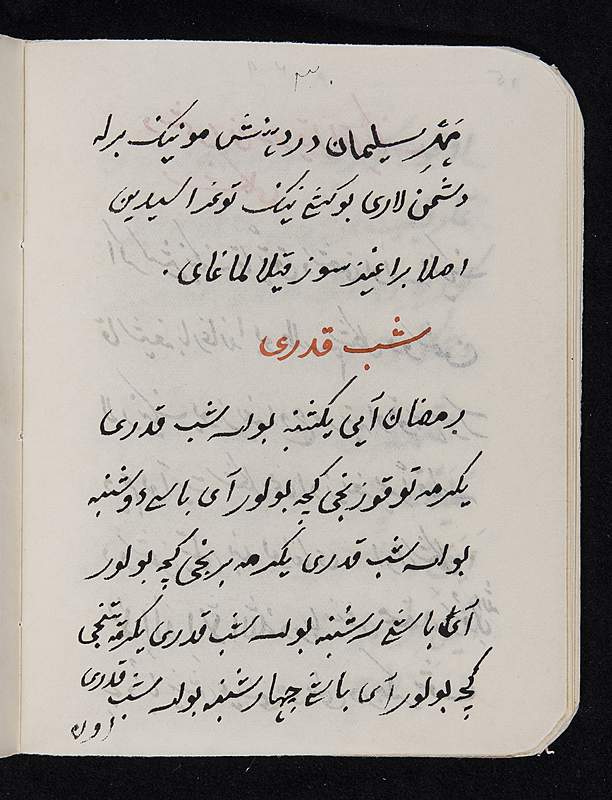 ۳۰
مهر سلیمان درر دینش مونیک برله
دشمن لاری بو کشی نیک توغرا سیدین
اصلا بر اغیز سوز قیلا لماغای.
شب قدری
رمضان آیی یکشنبه بولسه شب قدری
یکرمه توقوزنجی کیچه بولور آی باشی دوشنبه
بولسه شب قدری یکرمه برنجی کیچه بولور
آی باشی سه شنبه بولسه شب قدری یکرمه یتنجی
کیچه بولور آی باشی چهار شنبه بولسه شب قدری
اون